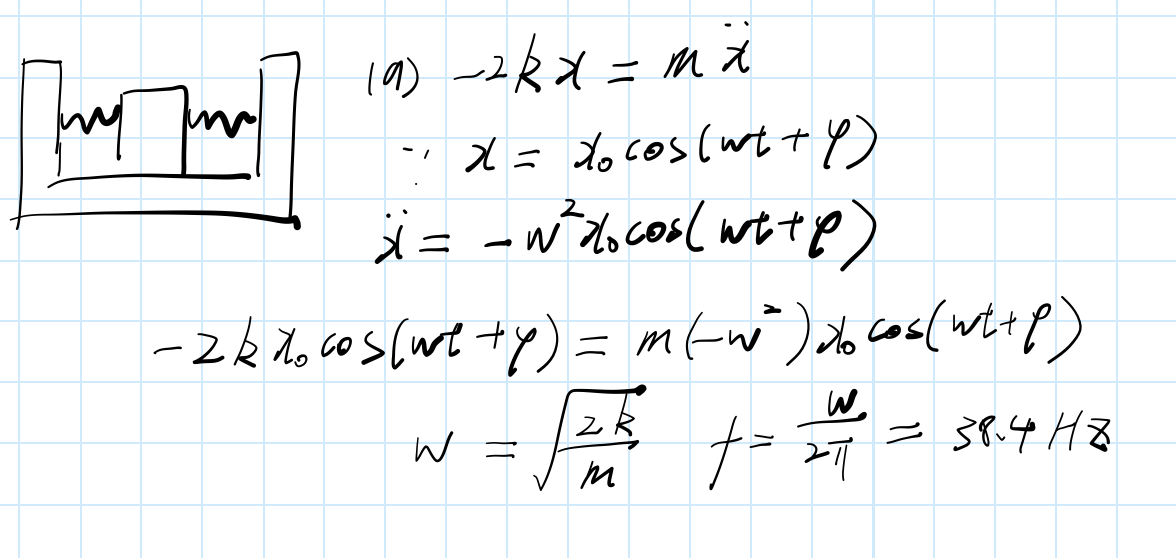 (a) -2kx = mẍ
∵ x = x₀cos(wt+φ)
ẍ = -w²x₀cos(wt+φ)
-2kx₀cos(wt+φ) = m(-w²)x₀cos(wt+φ)
w = √(2k/m) f = w/2π = 38.4 Hz